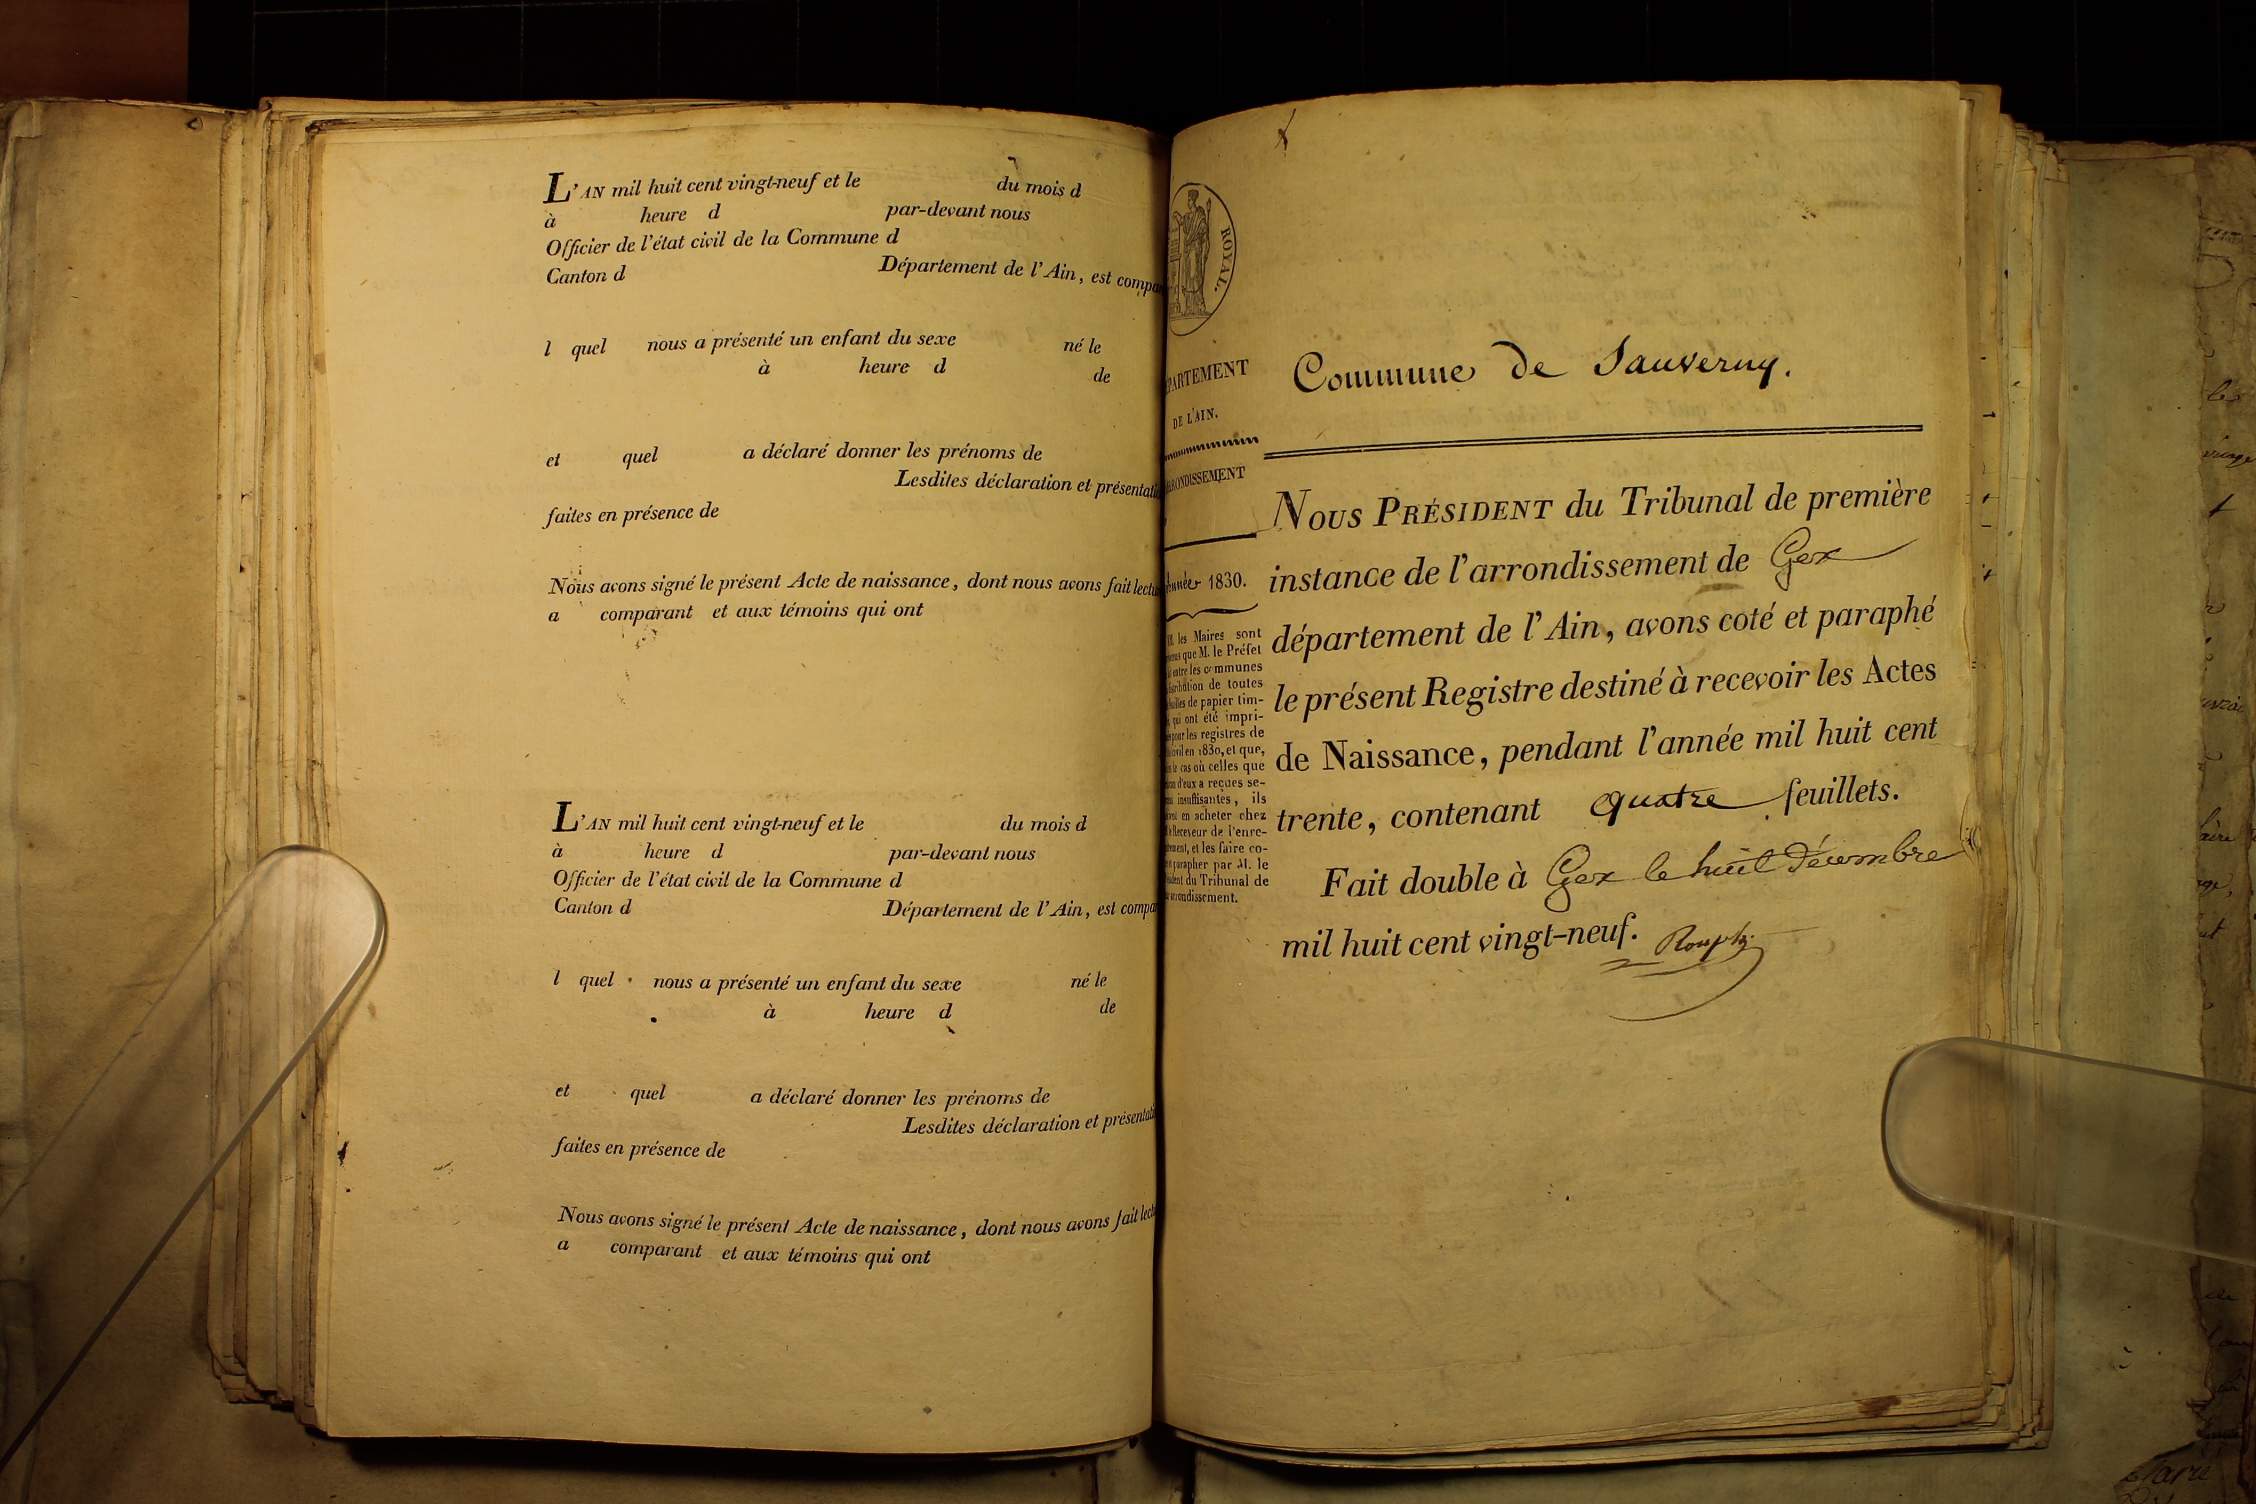 L'AN mil huit cent vingt-neuf et le du mois d
à heure d par-devant nous
Officier de l'état civil de la Commune d
Canton d Département de l'Ain, est compa
l quel nous a présenté un enfant du sexe né le
à heure d de
et quel a déclaré donner les prénoms de
Lesdites déclaration et présentati
faites en présence de
Nous avons signé le présent Acte de naissance, dont nous avons fait lectu
a comparant et aux témoins qui ont
L'AN mil huit cent vingt-neuf et le du mois d
à heure d par-devant nous
Officier de l'état civil de la Commune d
Canton d Département de l'Ain, est compa
l quel nous a présenté un enfant du sexe né le
à heure d de
et quel a déclaré donner les prénoms de
Lesdites déclaration et présentati
faites en présence de
Nous avons signé le présent Acte de naissance, dont nous avons fait lect
a comparant et aux témoins qui ont
ROYAL.
PARTEMENT
DE L'AIN.
ARRONDISSEMENT
Année 1830.
les Maires sont
que M. le Préfet
entre les communes
distribution de toutes
feuilles de papier tim-
qui ont été impri-
pour les registres de
civil en 1830, et que,
le cas où celles que
d'eux a reçues se-
insuffisantes, ils
en acheter chez
le Receveur de l'enre-
et les faire co-
parapher par M. le
du Tribunal de
arrondissement.
Commune de Sauverny.
NOUS PRÉSIDENT du Tribunal de première
instance de l'arrondissement de Gex
département de l'Ain, avons coté et paraphé
le présent Registre destiné à recevoir les Actes
de Naissance, pendant l'année mil huit cent
trente, contenant quatre feuillets.
Fait double à Gex le huit Décembre
mil huit cent vingt-neuf.